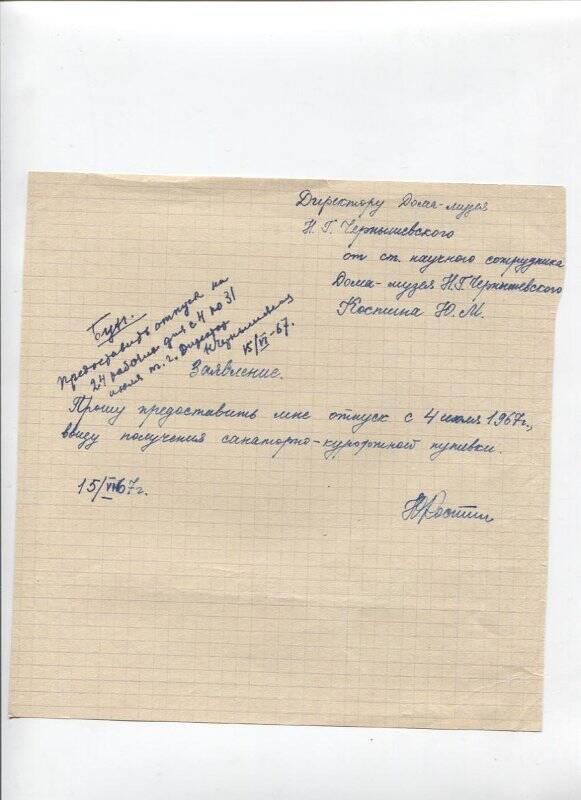 Директору Дома-музея
Н. Г. Чернышевского
от ст. научного сотрудника
Дома-музея Н.Г. Чернышевского
Костина Ю. М.
Бух.
Предоставить отпуск на
24 рабочих дня с 4 по 31
июля т. г. Директор
15/VI-67.
Заявление.
Прошу предоставить мне отпуск с 4 июля 1967г.,
ввиду получения санаторно-курортной путевки.
15/VI67г.
ЮКостин